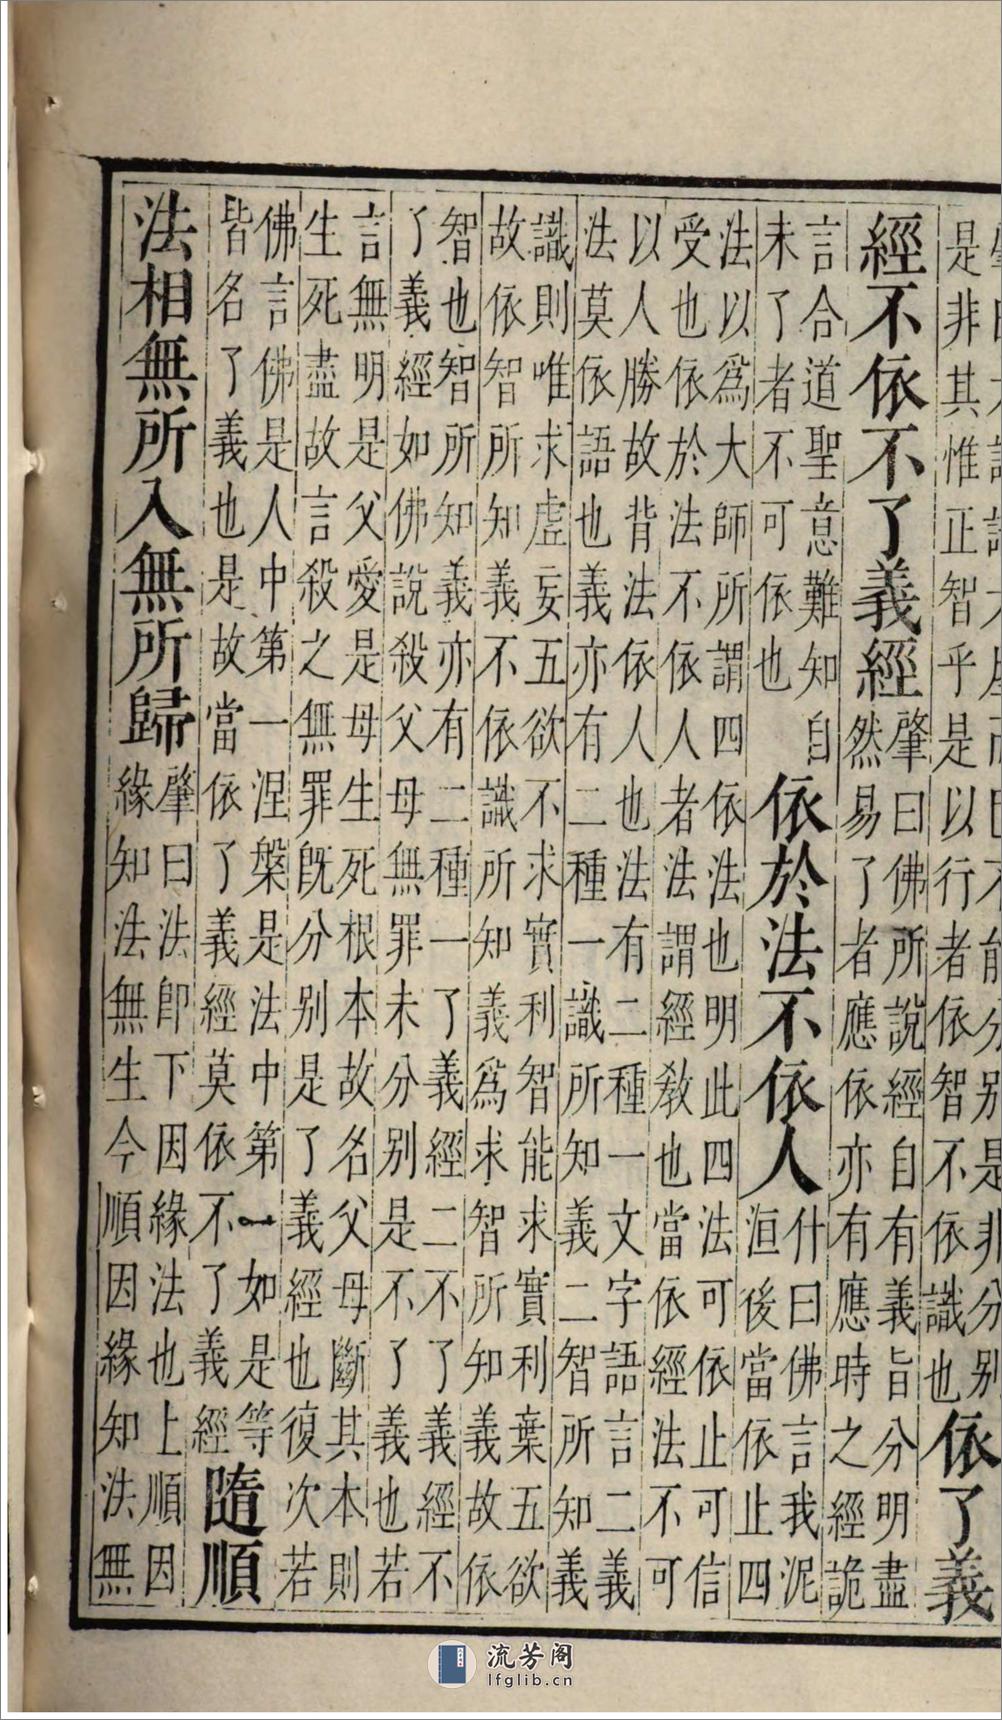 不能分別是非分別
是非其惟正智乎是以行者依智不依識也
依了義
經不依不了義經
肇曰佛所說經自有義旨分明盡
然易了者應依亦有應時之經詭
言合道聖意難知自
未了者不可依也
依於法不依人
什曰佛言我泥
洹後當依止四
法以爲大師所謂四依法也明此四法可依止可信
受也依於法不依人者法謂經敎也當依經法不可
以人勝故背法依人也法有二種一文字語言二義
法莫依語也義亦有二種一識所知義二智所知義
識則唯求虛妄五欲不求實利智能求實利葉五欲
故依智所知義不依識所知義爲求智所知義故依
智也智所知義亦有二種一了義經二不了義經不
了義經如佛說殺父母無罪未分別是不了義也若
言無明是父愛是母生死根本故名父母斷其本則
生死盡故言殺之無罪旣分別是了義經也復次若
佛言佛是人中第一涅槃是法中第一如是等
皆名了義也是故當依了義經莫依不了義經
隨順
法相無所入無所歸
肇曰法卽下因緣法也上順因
緣知法無生今順因緣知法無
流芳阁
lfglib.cn